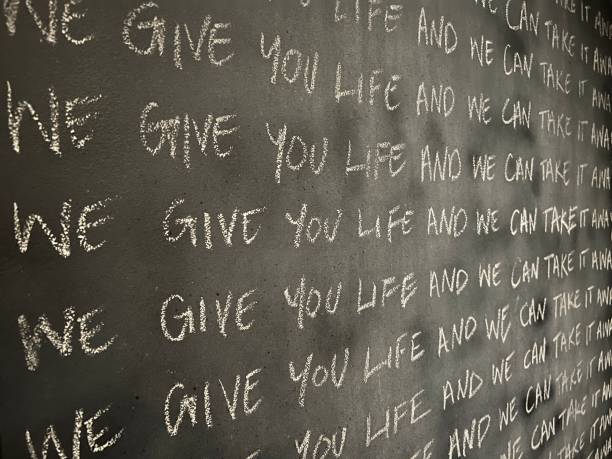 CAN TAKE IT AWA
LIFE AND WE CAN TAKE IT AWA
WE GIVE YOU LIFE AND WE CAN TAKE IT AWA
WE GIVE YOU LIFE AND WE CAN TAKE IT AWA
WE GIVE YOU LIFE AND WE CAN TAKE IT AWA
WE GIVE YOU LIFE AND WE CAN TAKE IT AWA
WE GIVE YOU LIFE AND WE CAN TAKE IT AWA
YOU LIFE AND WE CAN TAKE IT AWA
AND WE CAN TAKE IT AWA